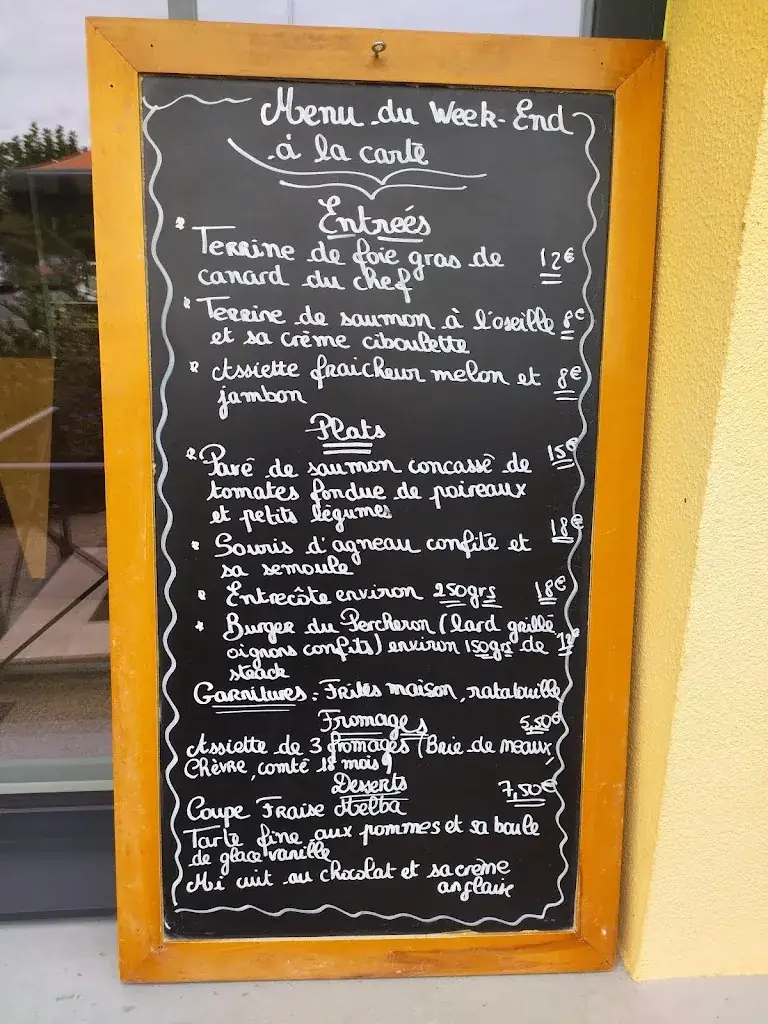 Menu du Week-End
à la carte
Entreés
* Terrine de foie gras de 12€
canard du chef
* Terrine de saumon à l'oseille 8€
et sa crème ciboulette
* Assiette fraicheur melon et 8€
jambon
Plats
* Pavé de saumon concassé de 15€
tomates fondue de poireaux
et petits légumes
* Souris d'agneau confite et 18€
sa semoule
* Entrecôte environ 250grs 18€
* Burger du Percheron (lard grillé
oignons confits) environ 150grs de
steack
Garnitures : Frites maison, ratatouille
Fromages 5,50€
Assiette de 3 fromages (Brie de meaux,
Chèvre, comté 18 mois)
Desserts 7,50€
Coupe Fraise Melba
Tarte fine aux pommes et sa boule
de glace vanille
Mi cuit au chocolat et sa crème
anglaise